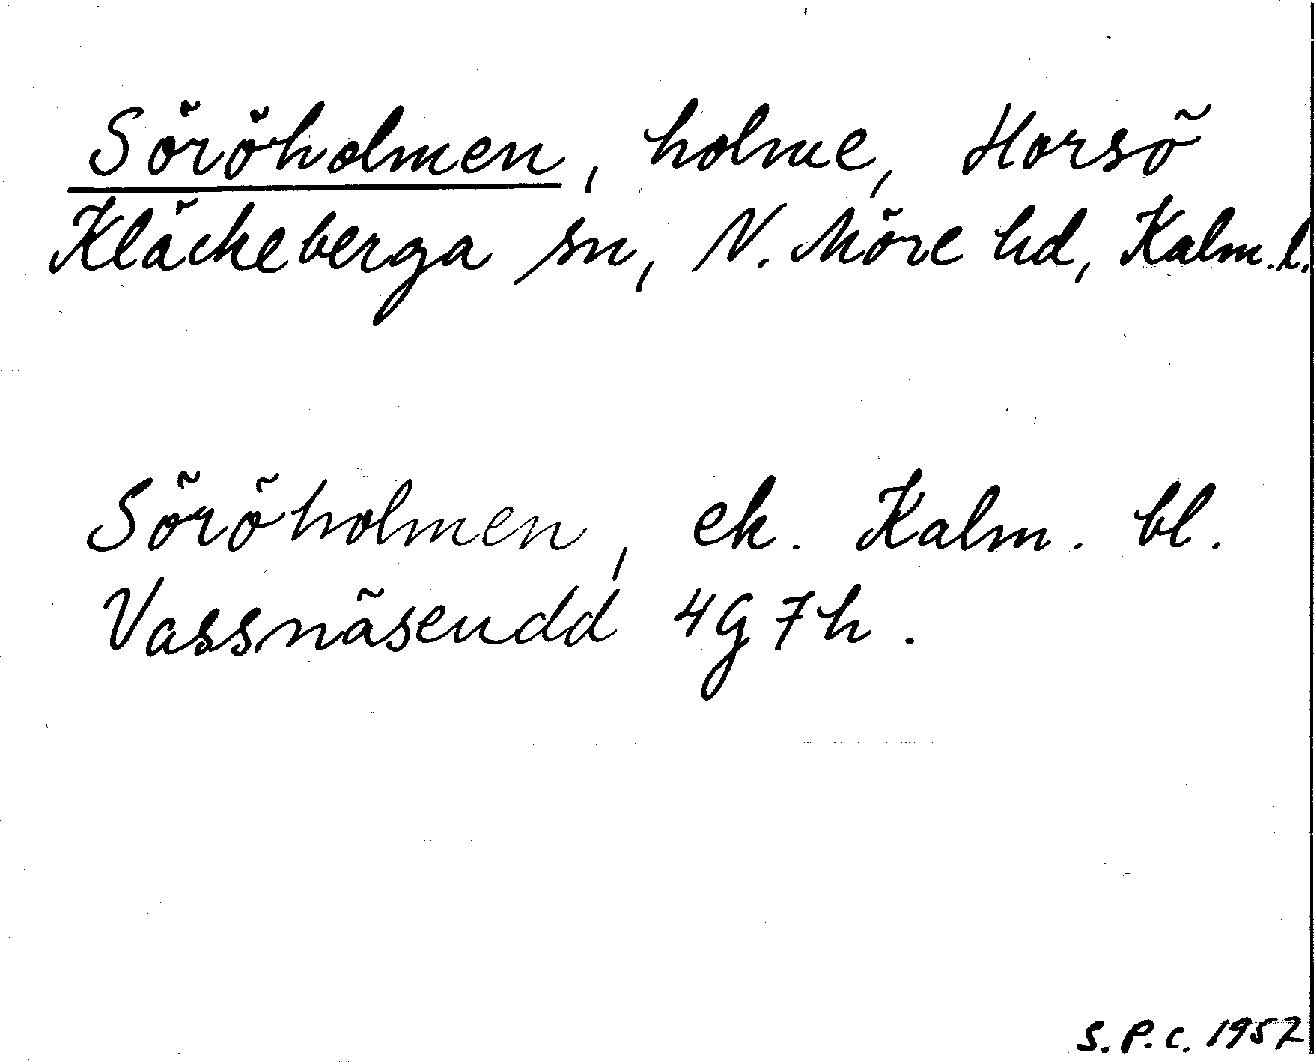 Söröholmen, holme, Horsö
Kläckeberga sn, N. Möre hd, Kalm.l.
Söröholmen, ek. Kalm. bl.
Vassnäsendd 4G7h.
S.P.C. 1957